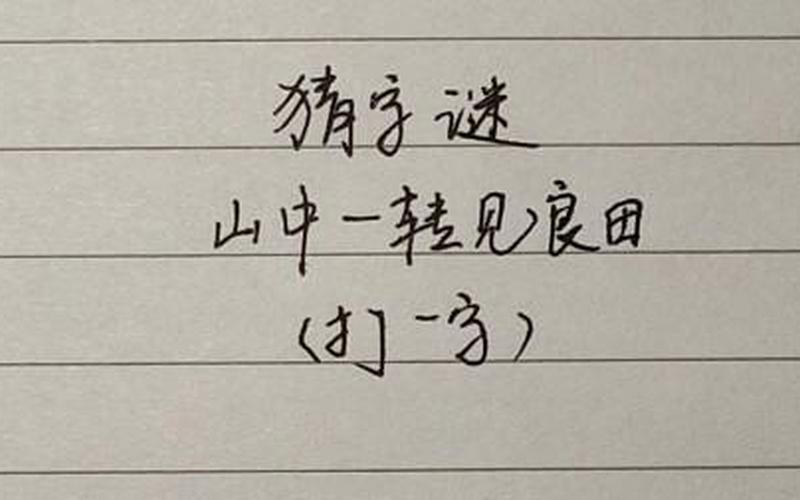 猜字谜
山中一转见良田
(打一字)